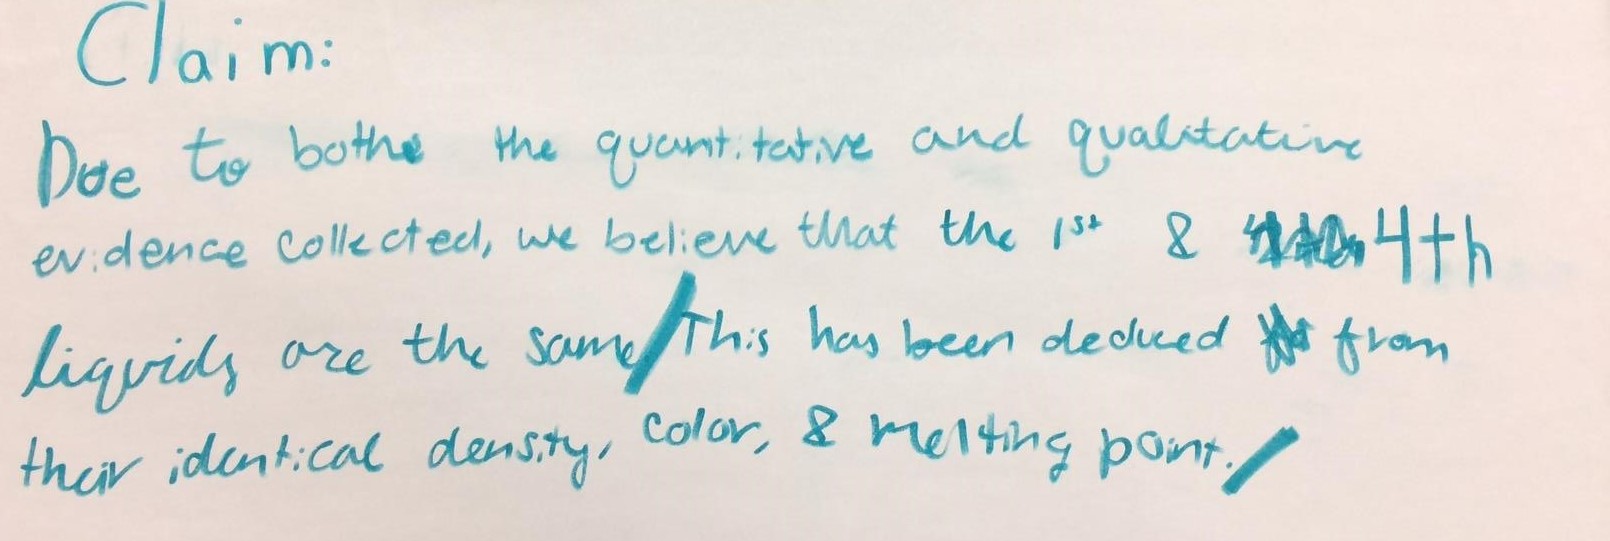 Claim:
Due to bothe the quantitative and qualitative
evidence collected, we believe that the 1st & 4th
liquids are the same/This has been deduced from
their identical density, color, & melting point./